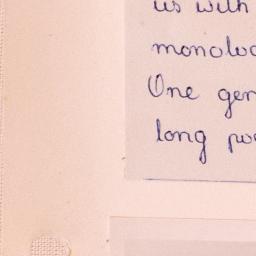 us with
monoloc
One gen
long po